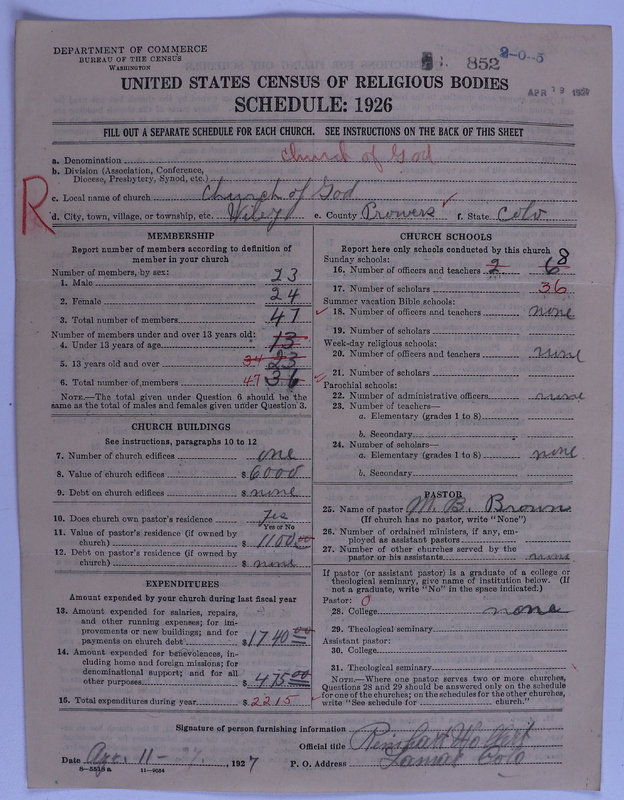 DEPARTMENT OF COMMERCE
BUREAU OF THE CENSUS
WASHINGTON
852
APR 19 1927
UNITED STATES CENSUS OF RELIGIOUS BODIES
SCHEDULE: 1926
FILL OUT A SEPARATE SCHEDULE FOR EACH CHURCH. SEE INSTRUCTIONS ON THE BACK OF THIS SHEET
R
a. Denomination Church of God
b. Division (Association, Conference,
Diocese, Presbytery, Synod, etc.)
c. Local name of church Church of God
d. City, town, village, or township, etc. Wiley e. County Prowers f. State Colo
MEMBERSHIP
Report number of members according to definition of
member in your church
Number of members, by sex:
1. Male 23
2. Female 24
3. Total number of members 47
Number of members under and over 13 years old:
4. Under 13 years of age 13
5. 13 years old and over 34 23
6. Total number of members 47 36
NOTE.—The total given under Question 6 should be the
same as the total of males and females given under Question 3.
CHURCH BUILDINGS
See instructions, paragraphs 10 to 12
7. Number of church edifices one
8. Value of church edifices $ 6000
9. Debt on church edifices $ none
10. Does church own pastor's residence Yes
Yes or No
11. Value of pastor's residence (if owned by
church) $ 1100.00
12. Debt on pastor's residence (if owned by
church) $ none
EXPENDITURES
Amount expended by your church during last fiscal year
13. Amount expended for salaries, repairs,
and other running expenses; for im-
provements or new buildings; and for
payments on church debt $ 1740 00
14. Amount expended for benevolences, in-
cluding home and foreign missions; for
denominational support; and for all
other purposes $ 475.00
15. Total expenditures during year $ 2215
CHURCH SCHOOLS
Report here only schools conducted by this church
Sunday schools:
16. Number of officers and teachers 2 6 8
17. Number of scholars 36
Summer vacation Bible schools:
18. Number of officers and teachers none
19. Number of scholars
Week-day religious schools:
20. Number of officers and teachers none
21. Number of scholars
Parochial schools:
22. Number of administrative officers none
23. Number of teachers—
a. Elementary (grades 1 to 8)
b. Secondary
24. Number of scholars—
a. Elementary (grades 1 to 8) none
b. Secondary
PASTOR
25. Name of pastor M. B. Brown
(If church has no pastor, write "None")
26. Number of ordained ministers, if any, em-
ployed as assistant pastors
27. Number of other churches served by the
pastor or his assistants none
If pastor (or assistant pastor) is a graduate of a college or
theological seminary, give name of institution below. (If
not a graduate, write "No" in the space indicated.)
Pastor: 0
28. College none
29. Theological seminary
Assistant pastor:
30. College
31. Theological seminary
NOTE.—Where one pastor serves two or more churches,
Questions 28 and 29 should be answered only on the schedule
for one of the churches; on the schedules for the other churches,
write "See schedule for church."
Signature of person furnishing information
Official title
Date Apr. 11 - 27, 1927 P. O. Address Lamar Colo
8-5518a 11-9084